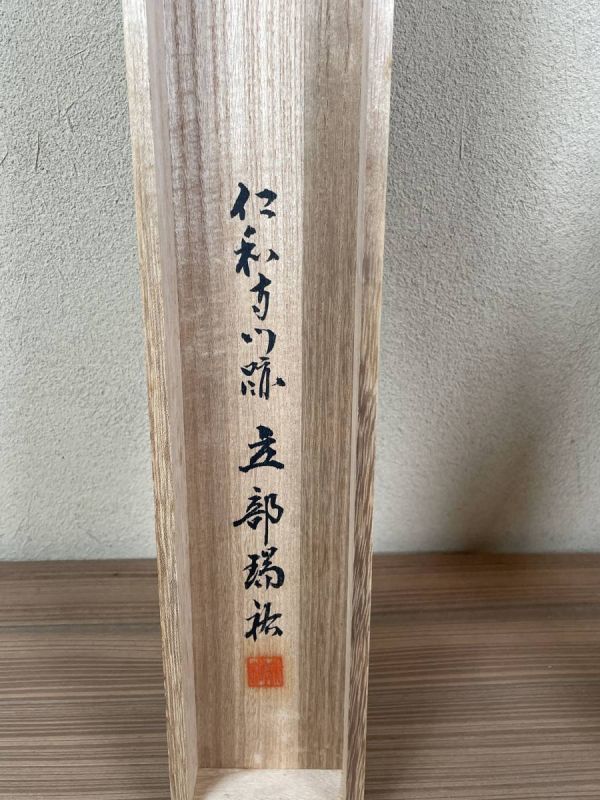 仁和寺門跡 立部瑞祐